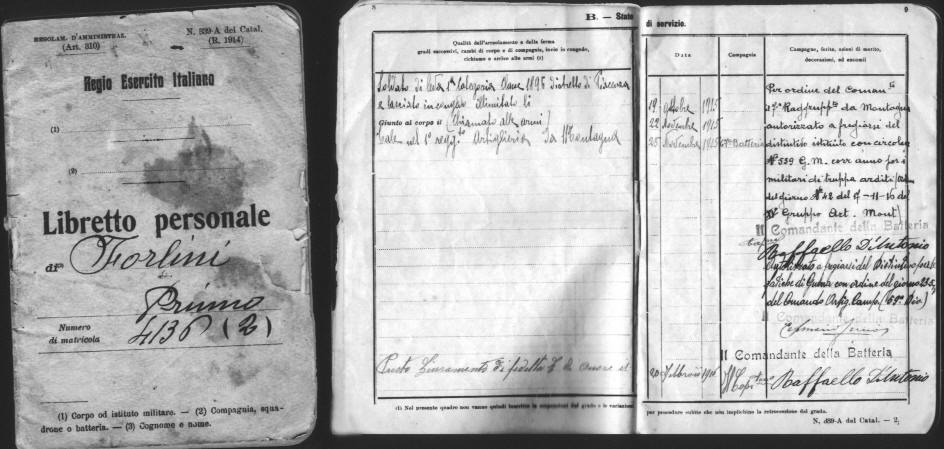 REGOLAM. D'AMMINISTRAZ.
(Art. 310)
N. 839-A del Catal.
(R. 1914)
Regio Esercito Italiano
(1)
(2)
Libretto personale
di
Forlini
Primo
Numero
di matricola
4136 (2)
(1) Corpo od istituto militare. — (2) Compagnia, squa-
drone o batteria. — (3) Cognome e nome.
8
B. — Stato
Qualità dell'arruolamento e della ferma
gradi successivi, cambi di corpo e di compagnia, invio in congedo,
richiamo e arrivo alle armi (1)
Soldato di leva 1ª Categoria Classe 1896 distretto di Piacenza
e lasciato in congedo illimitato li
Giunto al corpo il (Chiamato alle armi)
Tale nel 1° regg.to Artiglieria da Montagna
Giuramento di fedeltà
(1) Nel presente quadro non vanno quindi inscritte le sospensioni dal grado e le variazioni
di servizio.
9
Data
Compagnia
Campagne, ferite, azioni di merito,
decorazioni, ed encomii
19 ottobre 1915
22 Novembre 1915
25 Novembre 1915 Batteria
Per ordine del Coman
Raggrupp to da Montagna
autorizzato a fregiarsi del
distintivo istituito con circolare
N° 559 G. M. corr anno per i
militari di truppa arditi
del giorno N° 42 del
Gruppo Art. Mont)
Il Comandante della Batteria
Raffaello DiAntonio
Autorizzato a fregiarsi del Distintivo
fatiche di Guerra con ordine del giorno
del Comando Artig. Campo
Il Comandante della Batteria
Il Comandante della Batteria
20 Febbraio 1916 Il Capitano Raffaello DiAntonio
per procedure subite che non implichino la retrocessione dal grado.
N. 839-A del Catal. — 2.